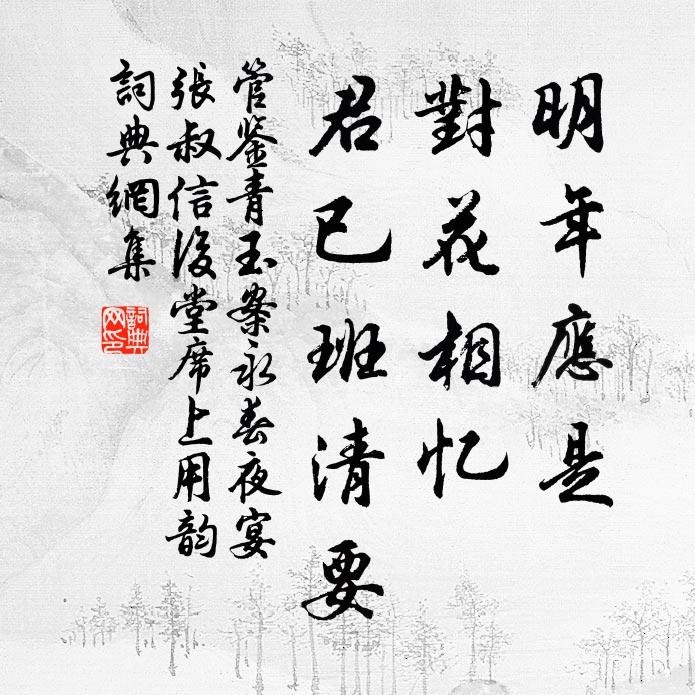 明年應是
對花相忆
君已班清要
管鉴青玉案永春夜宴
張叔信後堂席上用韵
詞典網集
詞典
网印